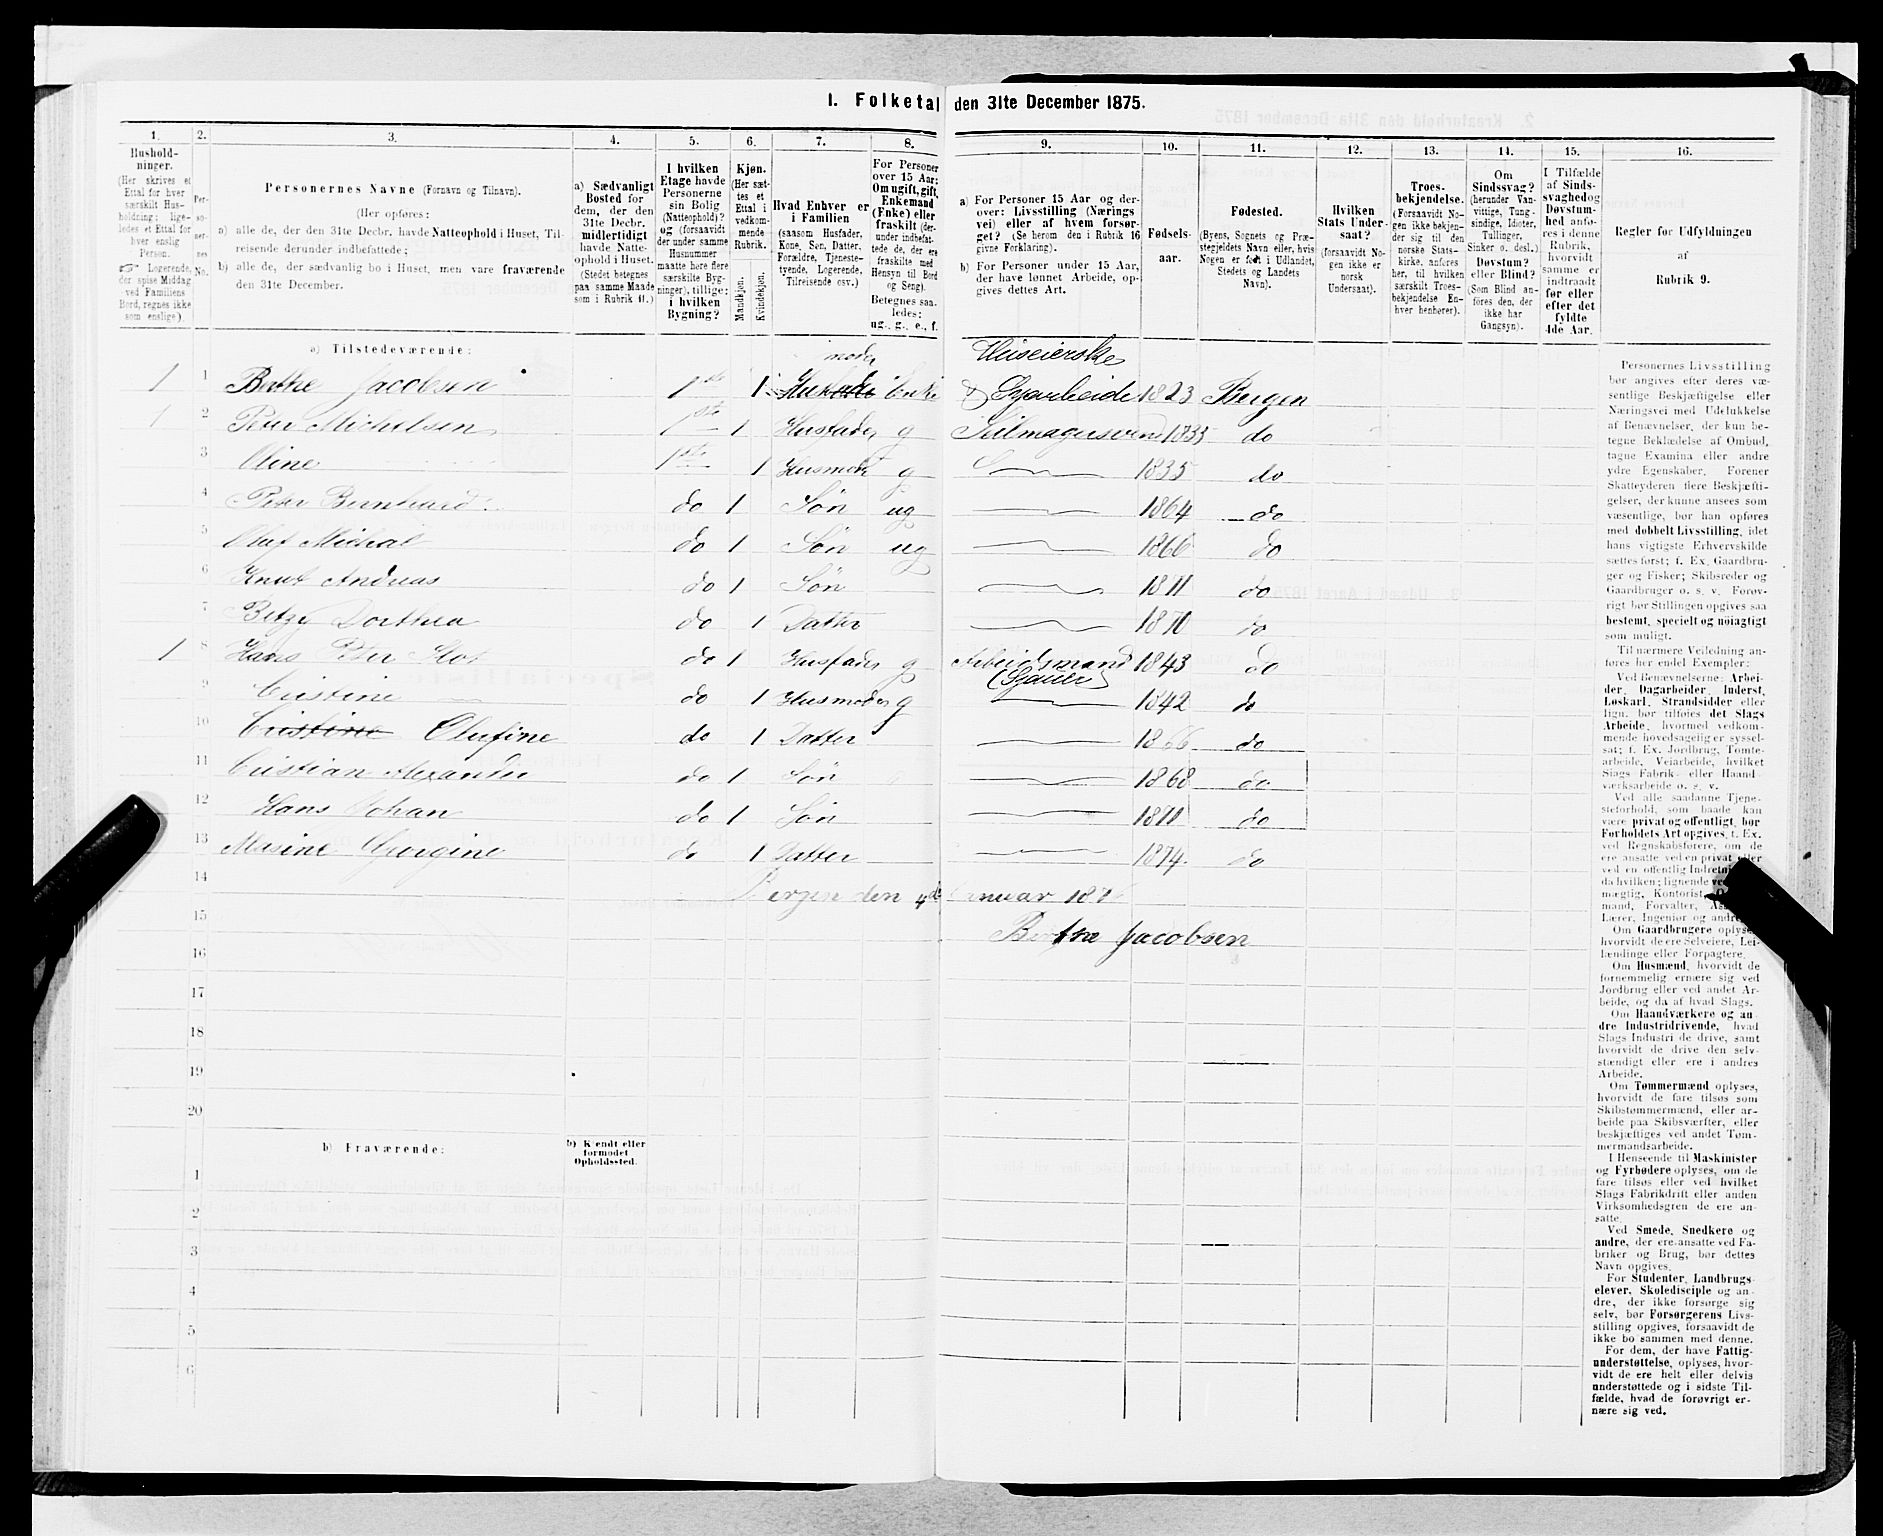 I. Folketal den 31te December 1875.
1. 2. 3. 4. 5. 6. 7. 8. 9. 10. 11. 12. 13. 14. 15. 16.
Husholdninger.
(Her skrives et
Ettal for hver
særskilt Hus-
holdning; lige-
ledes et Ettal for
hver enslig
Person.
☞ Logerende,
der spise Middag
ved Familiens
Bord, regnes ikke
som enslige).
Per-
so-
ner-
nes
No.
Personernes Navne (Fornavn og Tilnavn).
(Her opføres:
a) alle de, der den 31te Decbr. havde Natteophold i Huset, Til-
reisende derunder indbefattede;
b) alle de, der sædvanlig bo i Huset, men vare fraværende
den 31te December.
a) Sædvanligt
Bosted for
dem, der den
31te Decbr.
midlertidigt
havde Natte-
ophold i Huset.
(Stedet betegnes
paa samme Maade
som i Rubrik 11.)
I hvilken
Etage havde
Personerne
sin Bolig
(Natteophold)?
og (forsaavidt
der under samme
Husnummer
maatte være flere
særskilte Byg-
ninger), tillige:
i hvilken
Bygning?
Kjøn.
(Her sæt-
tes et
Ettal i
vedkom-
mende
Rubrik.
Mandkjøn.
Kvindekjøn.
Hvad Enhver er
i Familien
(saasom Husfader,
Kone, Søn, Datter,
Forældre, Tjeneste-
tyende, Logerende,
Tilreisende osv.)
For Personer
over 15 Aar:
Om ugift, gift,
Enkemand
(Enke) eller
fraskilt (der-
under indbefat-
tede de, der ere
fraskilte med
Hensyn til Bord
og Seng).
Betegnes saa-
ledes:
ug., g., e., f.
a) For Personer 15 Aar og der-
over: Livsstilling (Nærings
vei) eller af hvem forsør-
get? (Se herom den i Rubrik 16
givne Forklaring).
b) For Personer under 15 Aar,
der have lønnet Arbeide, op-
gives dettes Art.
Fødsels-
aar.
Fødested.
(Byens, Sognets og Præ-
stegjeldets Navn eller, hvis
Nogen er født i Udlandet,
Stedets og Landets
Navn).
Hvilken
Stats Under-
saat?
(forsaavidt No-
gen ikke er
norsk
Undersaat).
Troes-
bekjendelse.
(Forsaavidt No-
gen ikke bekjen-
der sig til den
norske Stats-
kirke, anføres
her, til hvilken
særskilt Troes-
bekjendelse En-
hver henhører).
Om
Sindssvag?
(herunder Van-
vittige, Tung-
sindige, Idioter,
Tullinger,
Sinker o. desl.)
Døvstum?
eller Blind?
(Som Blind an-
føres den, der
ikke har
Gangsyn).
I Tilfælde
af Sinds-
svaghed og
Døvstum-
hed anfø-
res i denne
Rubrik,
hvorvidt
samme er
indtraadt
før eller
efter det
fyldte
4de Aar.
Regler for Udfyldningen
af
Rubrik 9.
a) Tilstedeværende:
moder Huseierske
1 1 Berthe Jacobsen 1ste 1 Enke & Syarbeide 1823 Bergen
1 2 Peter Michelsen 1ste 1 Husfader g 1835 do
3 Oline 1ste 1 Husmoder g 1835 do
4 Peter Bernhard do 1 Søn ug 1864 do
5 Oluf Michal do 1 Søn ug 1866 do
6 Knut Andreas do 1 Søn do
7 Betzy Dorthea do 1 Datter 1870 do
1 8 Hans Peter do 1 Husfader g Arbeidsmand 1843 do
9 Cristine do 1 Husmoder g 1842 do
10 Cristine Olufine do 1 Datter 1866 do
11 Cristian Alexander do 1 Søn 1868 do
12 Hans Johan do 1 Søn do
13 Masine Georgine do 1 Datter 1874 do
14 Bergen den 4de Januar 1876
15 Berthe Jacobsen
16
17
18
19
20
b) Fraværende:
b) Kjendt eller
formodet
Opholdssted.
1
2
3
4
5
6
Personernes Livsstilling
bør angives efter deres væ-
sentlige Beskjæftigelse eller
Næringsvei med Udelukkelse
af Benævnelser, der kun be-
tegne Beklædelse af Ombud,
tagne Examina eller andre
ydre Egenskaber. Forener
Skatteyderen flere Beskjæfti-
gelser, der kunne ansees som
væsentlige, bør han opføres
med dobbelt Livsstilling, idet
hans vigtigste Erhvervskilde
sættes først; f. Ex. Gaardbru-
ger og Fisker; Skibsreder og
Gaardbruger o. s. v. Forøv-
rigt bør Stillingen opgives saa
bestemt, specielt og nøiagtigt
som muligt.
Til nærmere Veiledning an-
føres her endel Exempler:
Ved Benævnelserne: Arbei-
der, Dagarbeider, Inderst,
Løskarl, Strandsidder eller
lign. bør tilføies det Slags
Arbeide, hvormed vedkom-
mende hovedsagelig er syssel-
sat; f. Ex. Jordbrug, Tomte-
arbeide, Veiarbeide, hvilket
Slags Fabrik- eller Haand-
værksarbeide o. s. v.
Ved alle saadanne Tjene-
steforhold, som baade kan
være privat og offentligt, bør
Forholdets Art opgives, t. Ex.
ved Regnskabsførere, om de
ere ansatte ved en privat eller
ved en offentlig Indretning
da hvilken; lignende
mægtig, Kontorist,
mand, Forvalter,
Lærer, Ingeniør og andre
Om Gaardbrugere oplyses
hvorvidt de ere Selveiere, Lei-
lændinge eller Forpagtere.
Om Husmænd, hvorvidt de
fornemmelig ernære sig ved
Jordbrug eller ved andet Ar-
beide, og da af hvad Slags.
Om Haandværkere og an-
dre Industridrivende, hvad
Slags Industri de drive, samt
hvorvidt de drive den selv-
stændigt eller ere i andres
Arbeide.
Om Tømmermænd oplyses,
hvorvidt de fare tilsøs som
Skibstømmermænd, eller ar-
beide paa Skibsværfter, eller
beskjæftiges ved andet Tøm-
mermandsarbeide.
I Henseende til Maskinister
og Fyrbødere oplyses, om de
fare tilsøs eller ved hvilket
Slags Fabrikdrift eller anden
Virksomhedsgren de ere an-
satte.
Ved Smede, Snedkere og
andre, der ere ansatte ved Fa-
briker og Brug, bør dettes
Navn opgives.
For Studenter, Landbrugs-
elever, Skoledisciple og an-
dre, der ikke forsørge sig
selv, bør Forsørgerens Livs-
stilling opgives, forsaavidt de
ikke bo sammen med denne.
For dem, der have Fattig-
understøttelse, oplyses, hvor-
vidt de ere helt eller delvis
understøttede og i sidste Til-
fælde, hvad de forøvrigt er-
nære sig ved.